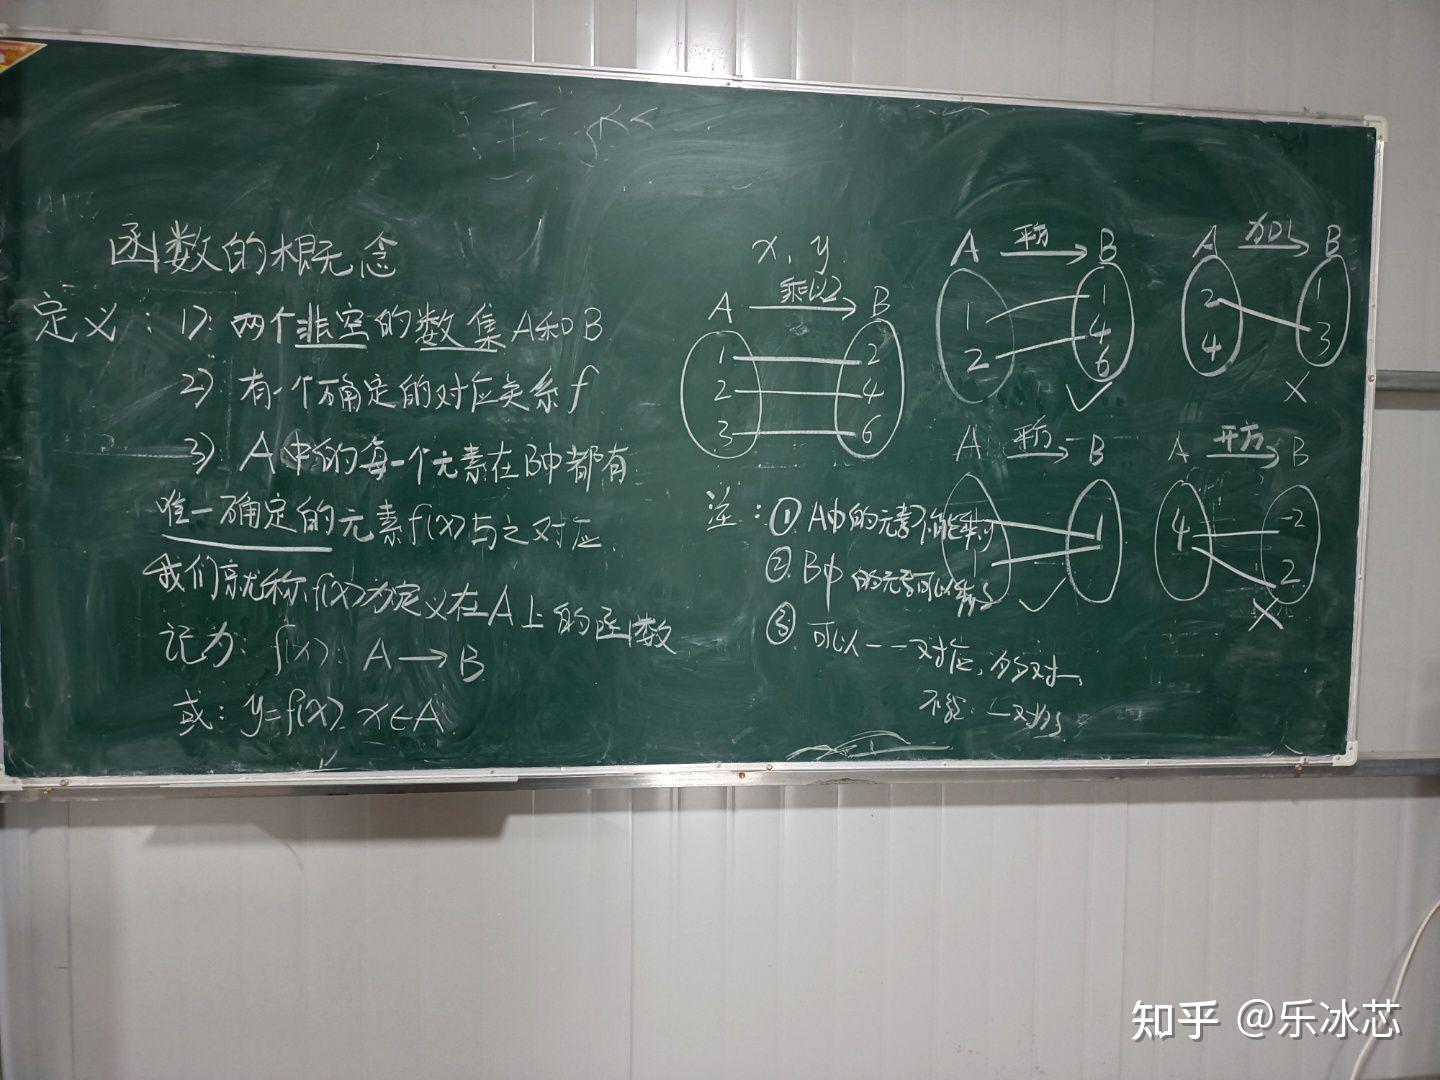 函数的概念
定义：1）：两个非空的数集A和B
2）：有一个确定的对应关系f
3）A中的每一个元素在B中都有
唯一确定的元素f(x)与之对应.
我们就称f(x)为定义在A上的函数
记为：f(x)：A→B
或：y=f(x) x∈A
x, y
A 乘以2 B
1 2
2 4
3 6
A 平方 B
1 1
2 4
6
✓
A 加1 B
2 1
4 3
×
A 平方 B
1
1
✓
A 开方 B
4 -2
2
×
注：① A中的元素不能剩
② B中的元素可以剩
③ 可以一一对应，多对一，
不能：一对多
知乎 @乐冰芯